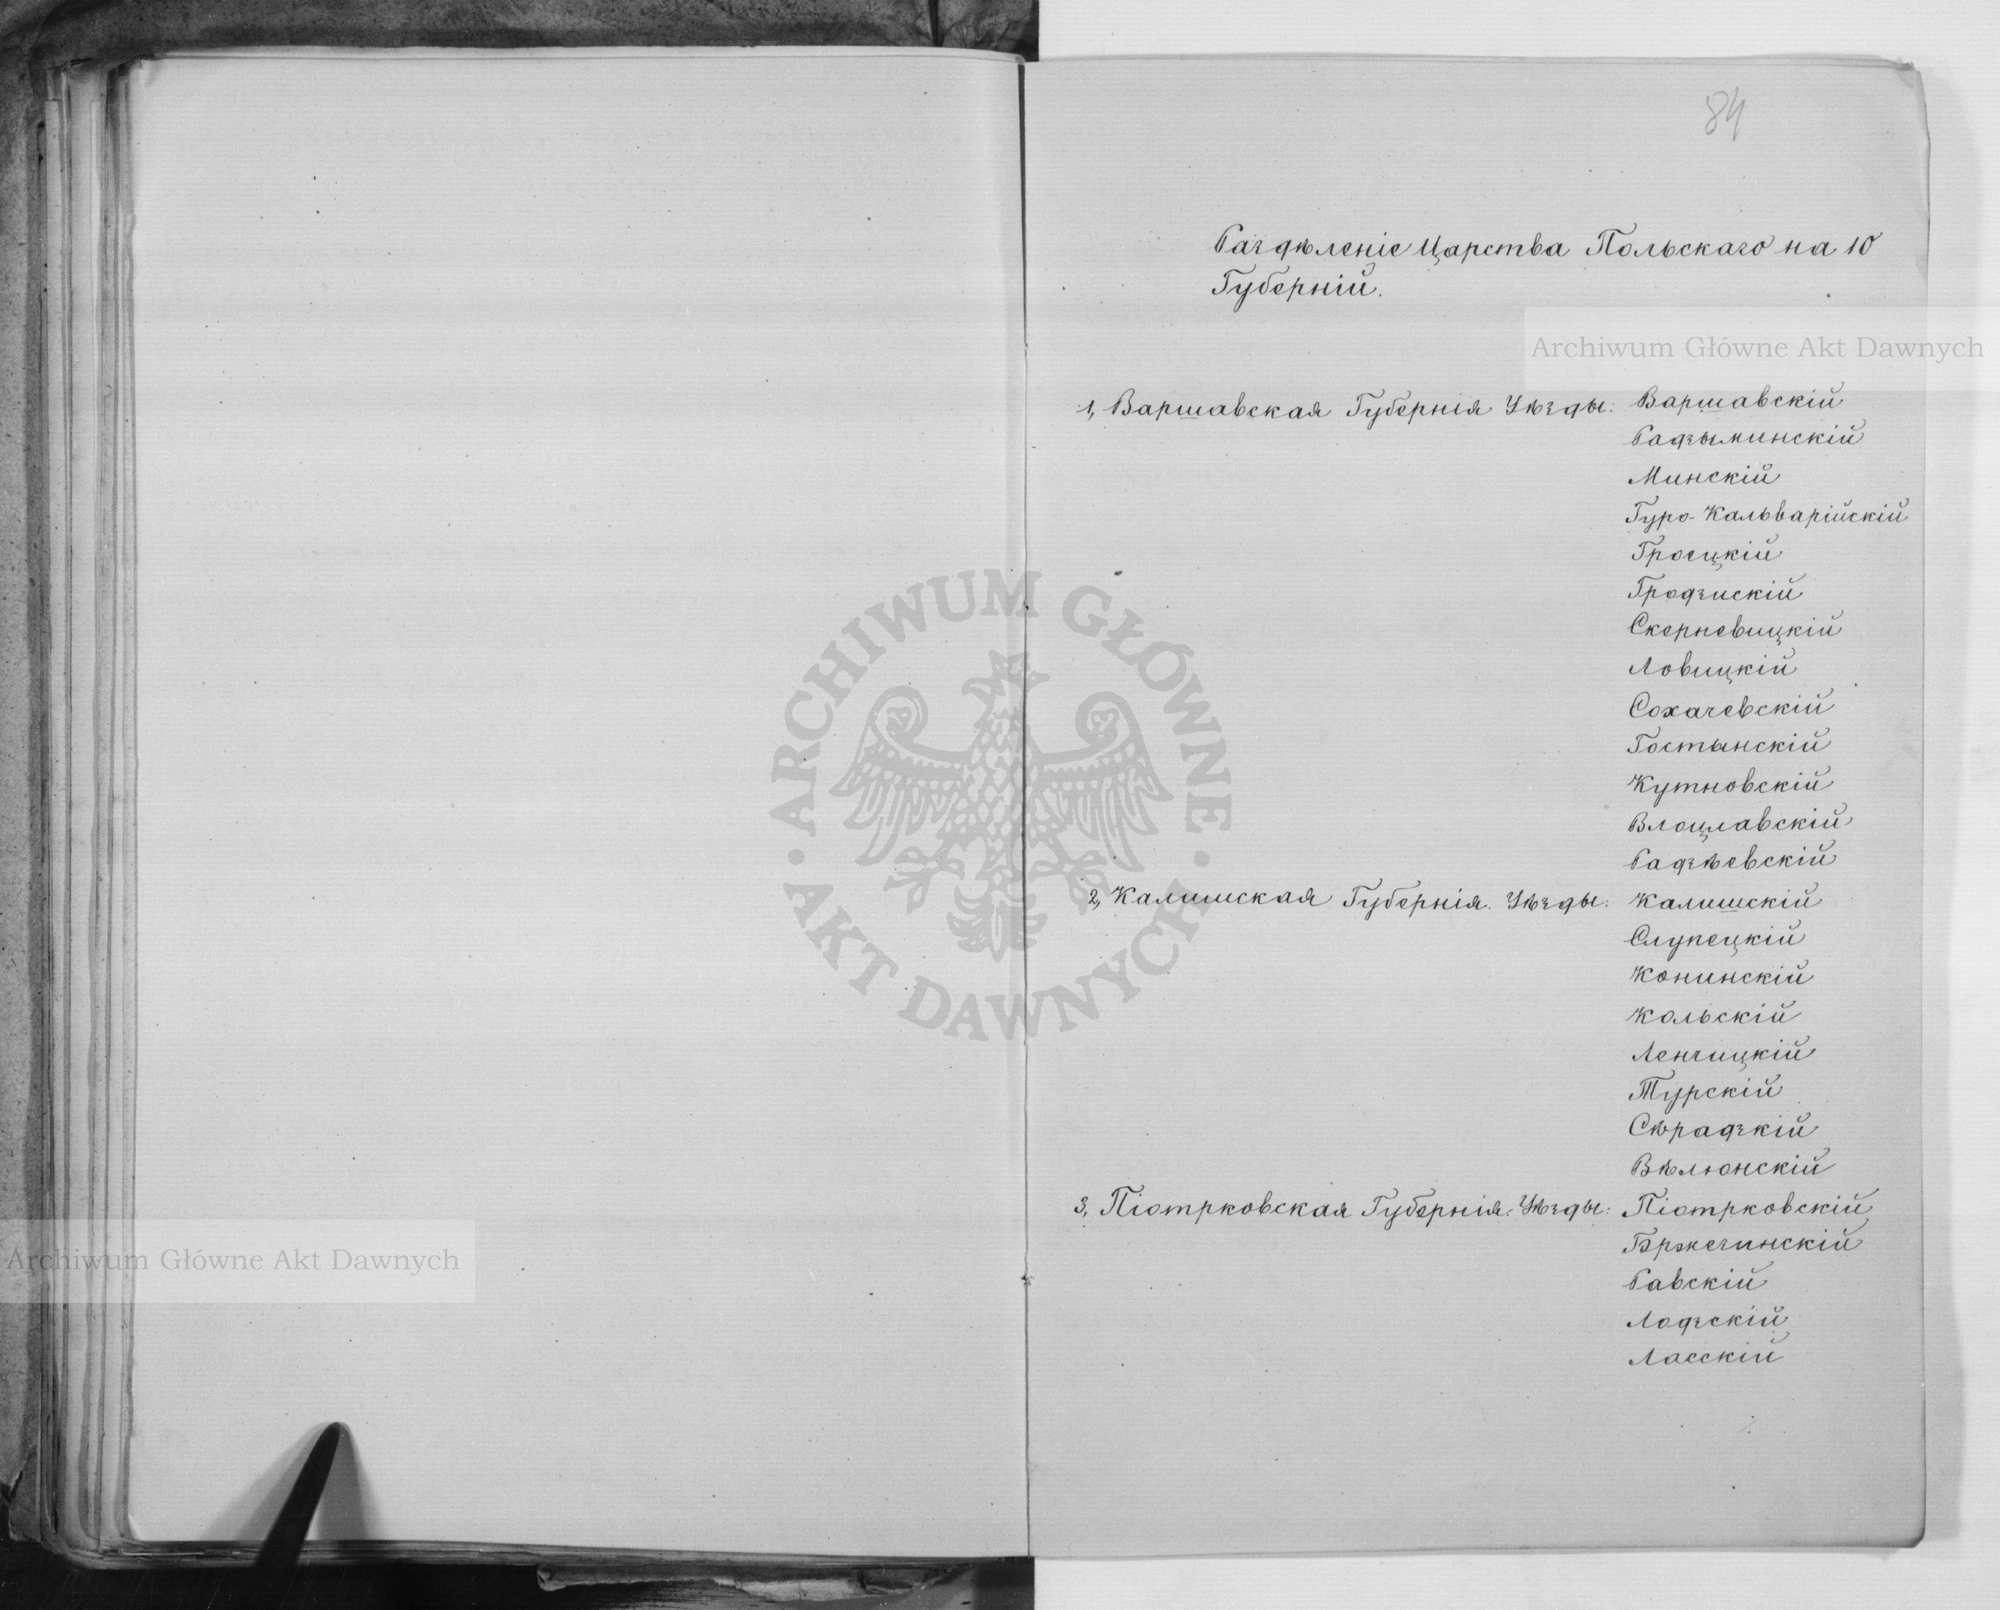 84
Раздѣленіе Царства Польскаго на 10
Губерній.
Archiwum Główne Akt Dawnych
1, Варшавская Губернія Уѣзды: Варшавскій
Радзыминскій
Минскій
Гуро-Кальварійскій
Гроецкій
Гродзискій
Скерневицкій
Ловицкій
Сохачевскій
Гостынскій
Кутновскій
Влоцлавскій
Радзѣевскій
2, Калишская Губернія. Уѣзды: Калишскій
Слупецкій
Конинскій
Кольскій
Ленчицкій
Турскій
Сѣрадзкій
Вѣлюнскій
3, Піотрковская Губернія. Уѣзды: Піотрковскій
Бржезинскій
Равскій
Лодзскій
Ласскій
ARCHIWUM GŁÓWNE · AKT DAWNYCH ·
Archiwum Główne Akt Dawnych